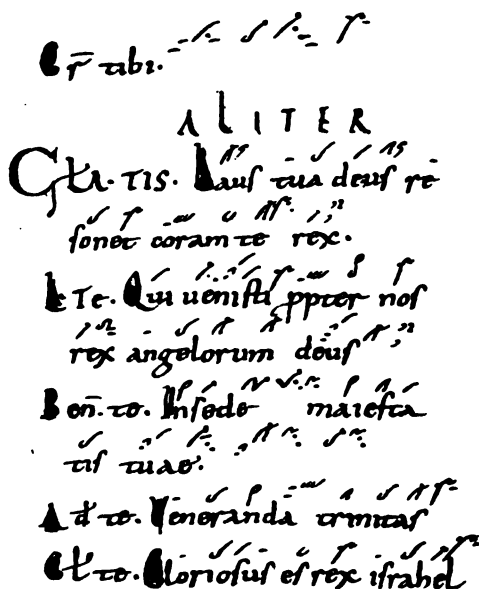 Gr̄ tibi.
ALITER
GLA. TIS. Laus tua deus re
sonet coram te rex.
Le Te. Qui uenisti ppter nos
rex angelorum deus
Ben̄. te. Insede maiesta
tis tuae.
Ad̄ te. Veneranda trinitas
Gł te. Gloriosus es rex israhel